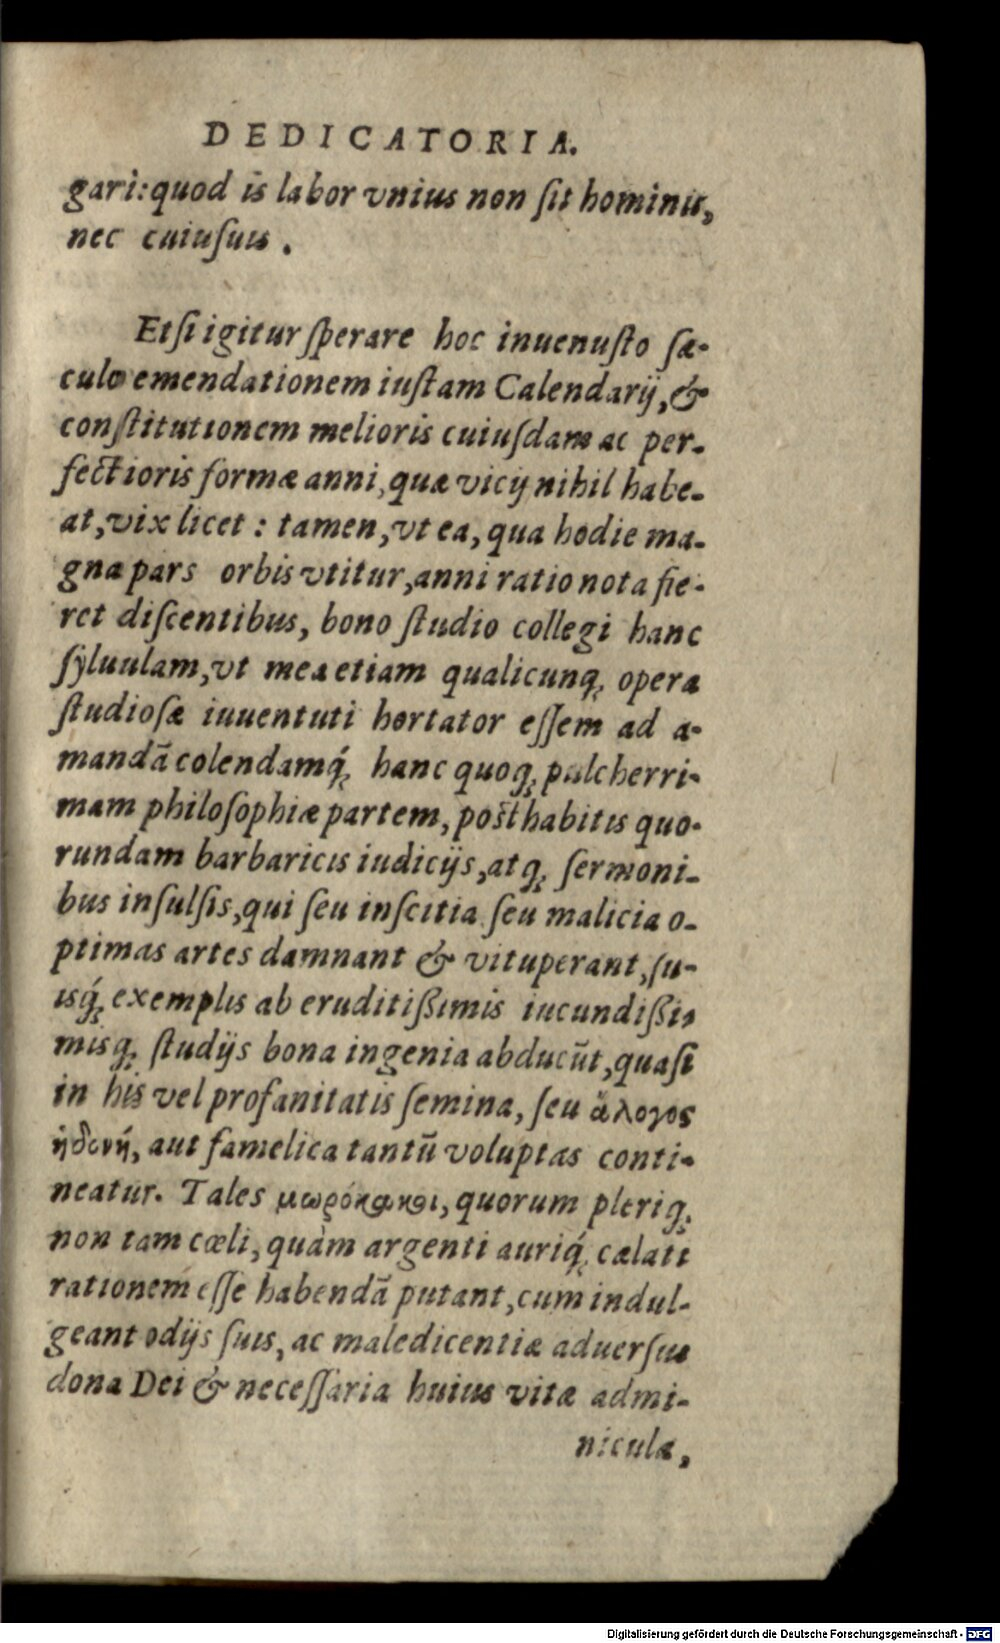 DEDICATORIA.
gari: quod is labor vnius non ſit hominis,
nec cuiuſuis.
Etſi igitur ſperare hoc inuenuſto ſæ-
culo emendationem iuſtam Calendarij, &
conſtitutionem melioris cuiuſdam ac per-
fectioris formæ anni, quæ vicij nihil habe-
at, vix licet: tamen, vt ea, qua hodie ma-
gna pars orbis vtitur, anni ratio nota fie-
ret diſcentibus, bono ſtudio collegi hanc
ſyluulam, vt mea etiam qualicunq́; opera
ſtudioſæ iuuentuti hortator eſſem ad a-
mandã colendamq́; hanc quoq; pulcherri-
mam philoſophiæ partem, poſthabitis quo-
rundam barbaricis iudicijs, atq; ſermoni-
bus inſulſis, qui ſeu inſcitia ſeu malicia o-
ptimas artes damnant & vituperant, ſu-
isq́; exemplis ab eruditißimis iucundißi-
misq; ſtudijs bona ingenia abducũt, quaſi
in his vel profanitatis ſemina, ſeu ἄλογος
ἡδονή, aut famelica tantũ voluptas conti-
neatur. Tales μωρόκακοι, quorum pleriq;
non tam cœli, quàm argenti auriq́; cælati
rationem eſſe habendã putant, cum indul-
geant odijs ſuis, ac maledicentiæ aduerſus
dona Dei & neceſſaria huius vitæ admi-
nicula,
Digitalisierung gefördert durch die Deutsche Forschungsgemeinschaft - DFG